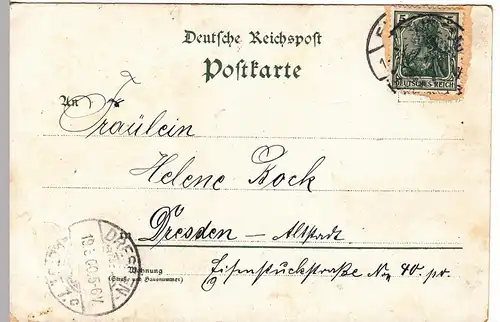 Deutsche Reichspost
Postkarte
5
DEUTSCHES REICH
An
Fräulein
Helene Bock
Dresden – Altstadt
Wohnung
(Straße und Hausnummer)
Eisenstuckstraße No 40. pr.
DRESDEN
19.6.00.5-6N.